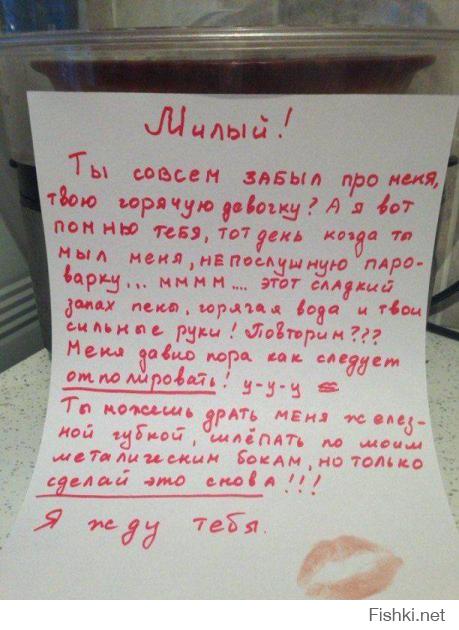 Милый!
Ты совсем забыл про меня,
твою горячую девочку? А я вот
помню тебя, тот день когда ты
мыл меня, непослушную паро-
варку... мммм.... этот сладкий
запах пены, горячая вода и твои
сильные руки! Повторим???
Меня давно пора как следует
отполировать! у-у-у
Ты можешь драть меня желез-
ной губкой, шлёпать по моим
металическим бокам, но только
сделай это снова!!!
Я жду тебя.
Fishki.net